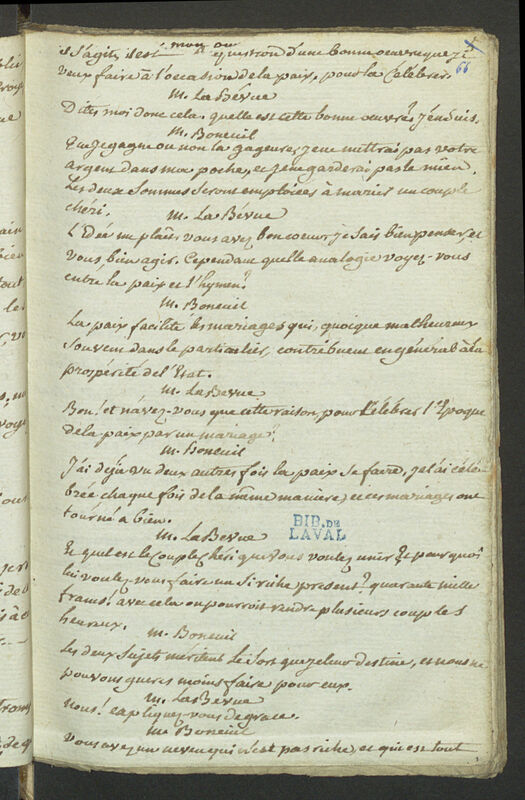 66
il s'agit, il est question d'une bonne oeuvre que je
veux faire à l'occasion de la paix, pour la Célébrer.
M. La Bévue
Dites moi donc cela, quelle est cette bonne oeuvre? j'en suis.
M. Boneuil
Que je gagne ou non la gageure, je ne mettrai pas votre
argent dans ma poche, et je ne garderai pas le mien.
Les deux Sommes Seront emploiées à marier un couple
chéri.
M. La Bévue
L'idée me plait, vous avez bon coeur, je sais bien penser, et
vous, bien agir. Cependant quelle analogie voyez-vous
entre la paix et l'hymen?
M. Boneuil
La paix facilite les mariages qui, quoique malheureux
Souvent dans le particulier, contribuent en général à la
prospérité de l'Etat.
M. La Bévue
Bon! et n'avez-vous que cette raison, pour Célébrer l'Epoque
de la paix par un mariage?
M. Boneuil
J'ai déjà vu deux autres fois la paix se faire, je l'ai célé-
brée chaque fois de la même maniere, et ces mariages ont
tourné à bien.
BIB. DE
LAVAL
M. La Bevue
Et quel est le Couple chéri que vous voulez unir? et pourquoi
lui voulez-vous faire un Si riche present? quarante mille
francs! avec cela on pourroit rendre plusieurs couples
heureux.
M. Boneuil
Les deux Sujets méritent le Sort que je leur destine, et nous ne
pouvons gueres moins faire pour eux.
M. La Bevue
Nous! expliquez-vous de grace.
M. Boneuil
Vous avez un neveu qui n'est pas riche, et qui est tout